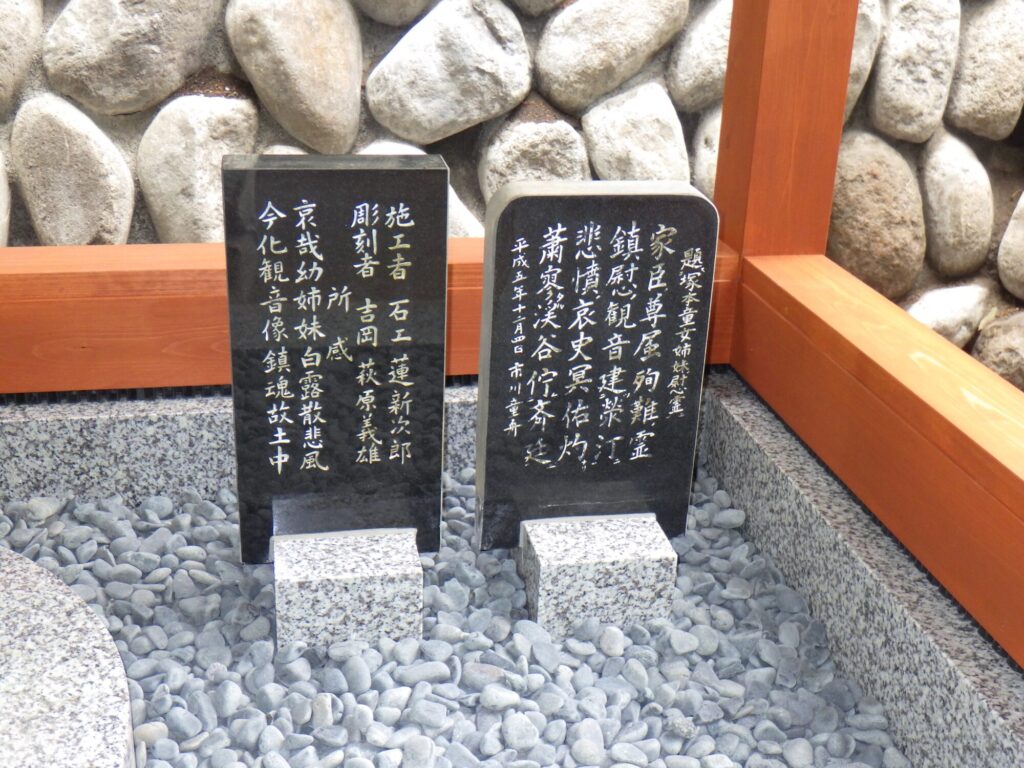 題塚本童女姉妹慰霊
家臣尊屋殉難霊
鎮慰観音建築汀
悲憤哀史冥佑灼
蕭寥渓谷佇斉廷
平成五年十二月四日 市川童舟
施工者 石工 蓮新次郎
彫刻者 吉岡 萩原義雄
所感
哀哉幼姉妹白露散悲風
今化観音像鎮魂故土中